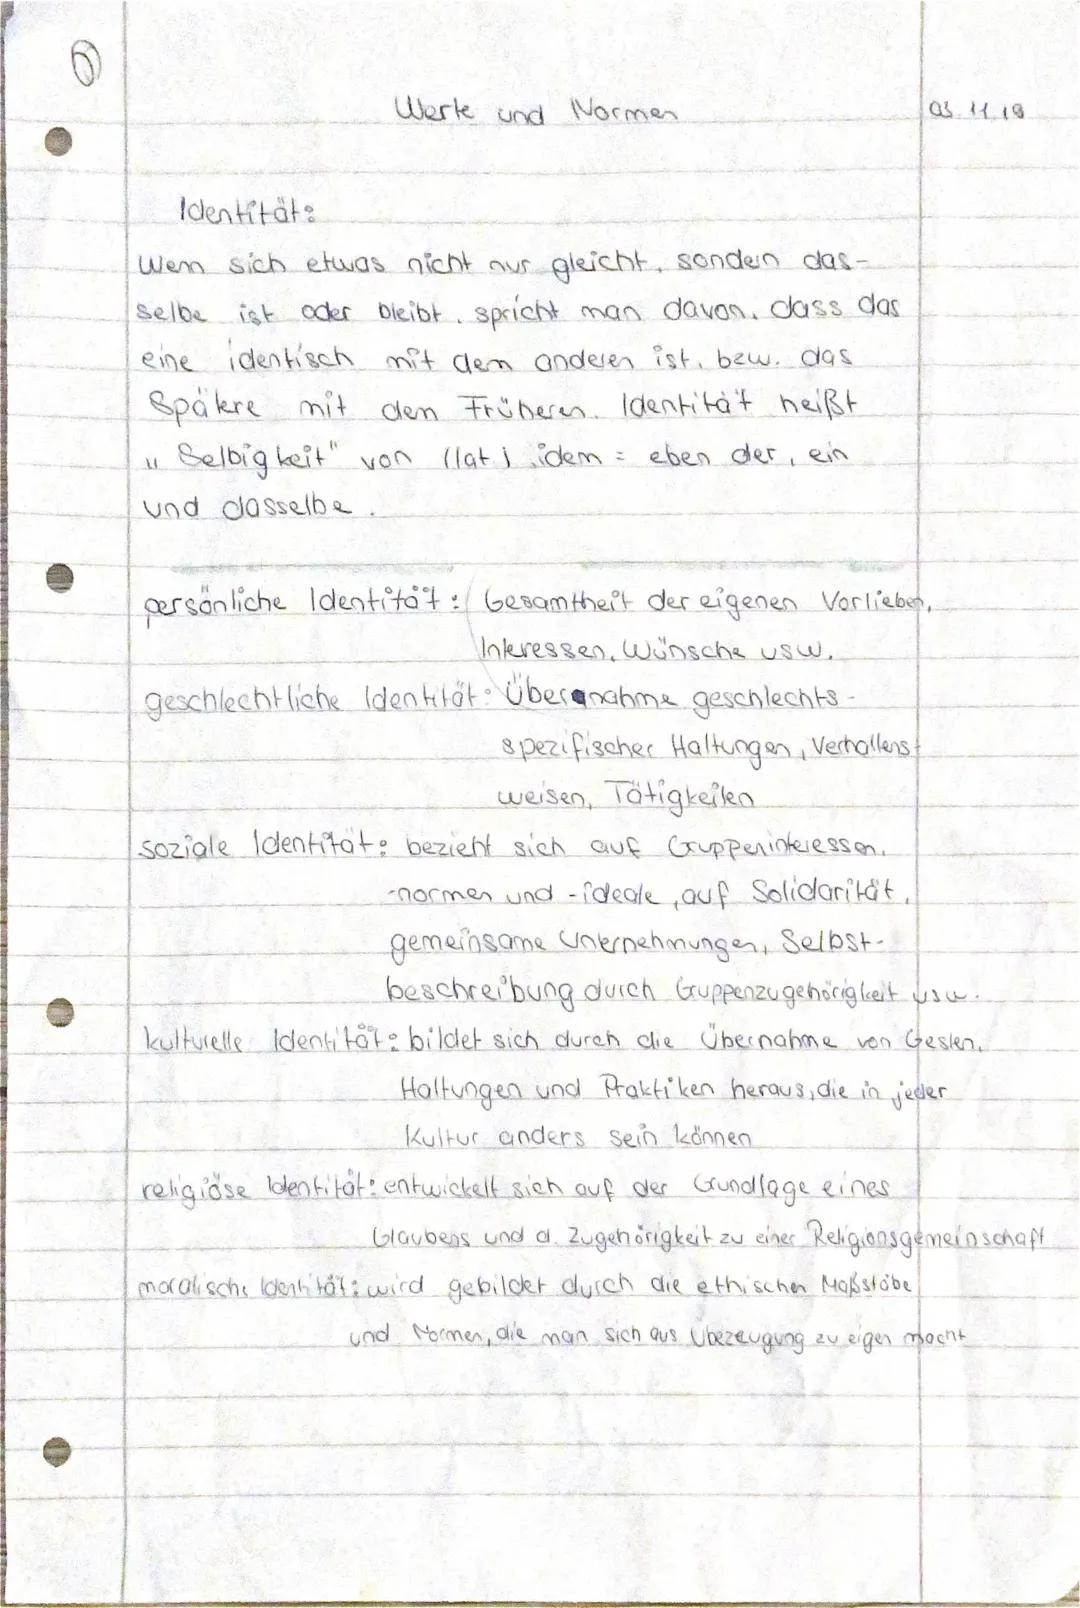 6
Werte und Normen 03.11.19
Identität:
Wenn sich etwas nicht nur gleicht, sondern das-
selbe ist oder bleibt, spricht man davon, dass das
eine identisch mit dem anderen ist, bzw. das
Spätere mit dem Früheren. Identität heißt
"Selbigkeit" von (lat.) idem = eben der, ein
und dasselbe.
persönliche Identität: Gesamtheit der eigenen Vorlieben,
Interessen, Wünsche usw.
geschlechtliche Identität: Übernahme geschlechts-
spezifischer Haltungen, Verhaltens-
weisen, Tätigkeiten
soziale Identität: bezieht sich auf Gruppeninteressen,
-normen und -ideale, auf Solidarität,
gemeinsame Unernehmungen, Selbst-
beschreibung durch Gruppenzugehörigkeit usw.
kulturelle Identität: bildet sich durch die Übernahme von Gesten,
Haltungen und Praktiken heraus, die in jeder
Kultur anders sein können
religiöse Identität: entwickelt sich auf der Grundlage eines
Glaubens und d. Zugehörigkeit zu einer Religionsgemeinschaft
moralische Identität: wird gebildet durch die ethischen Maßstäbe
und Normen, die man sich aus Überzeugung zu eigen macht